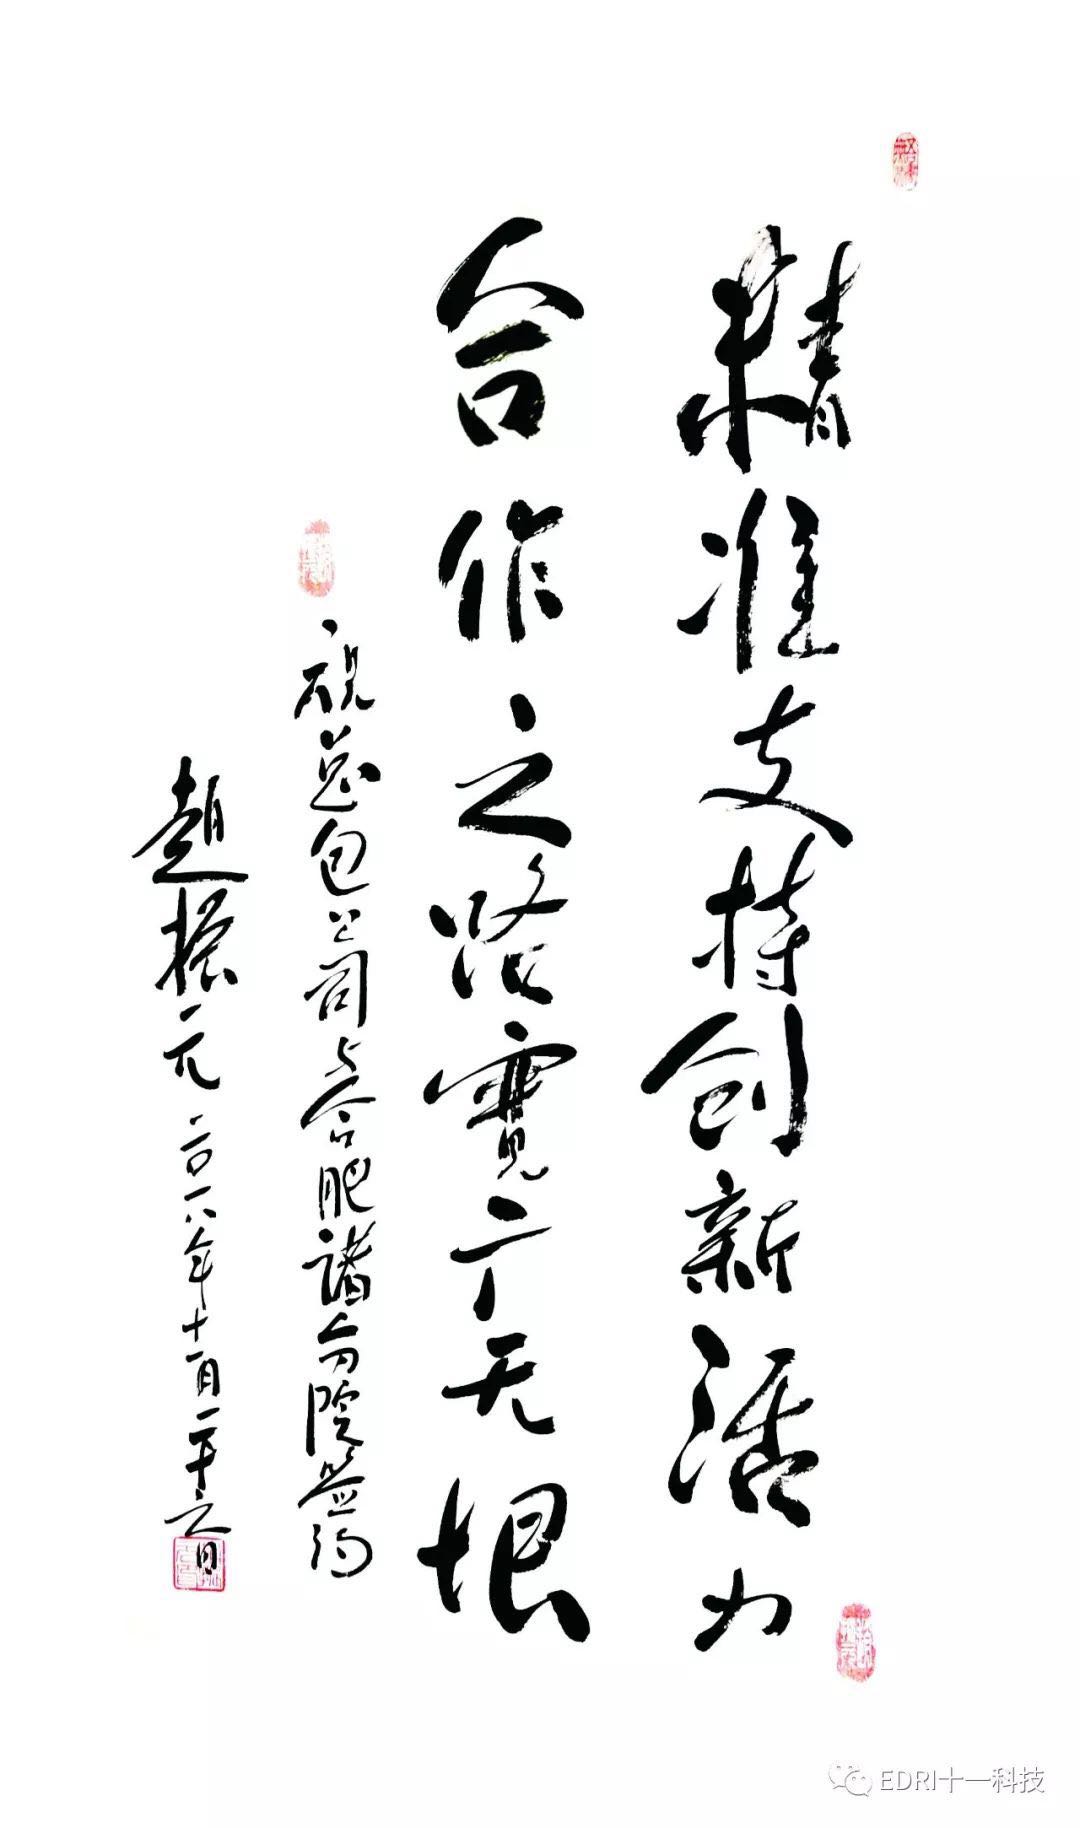 精准支持创新活力
合作之路寬广无垠
祝总包公司与合肥諸院签约
趙振元 二〇一八年十一月二十日
EDRI十一科技